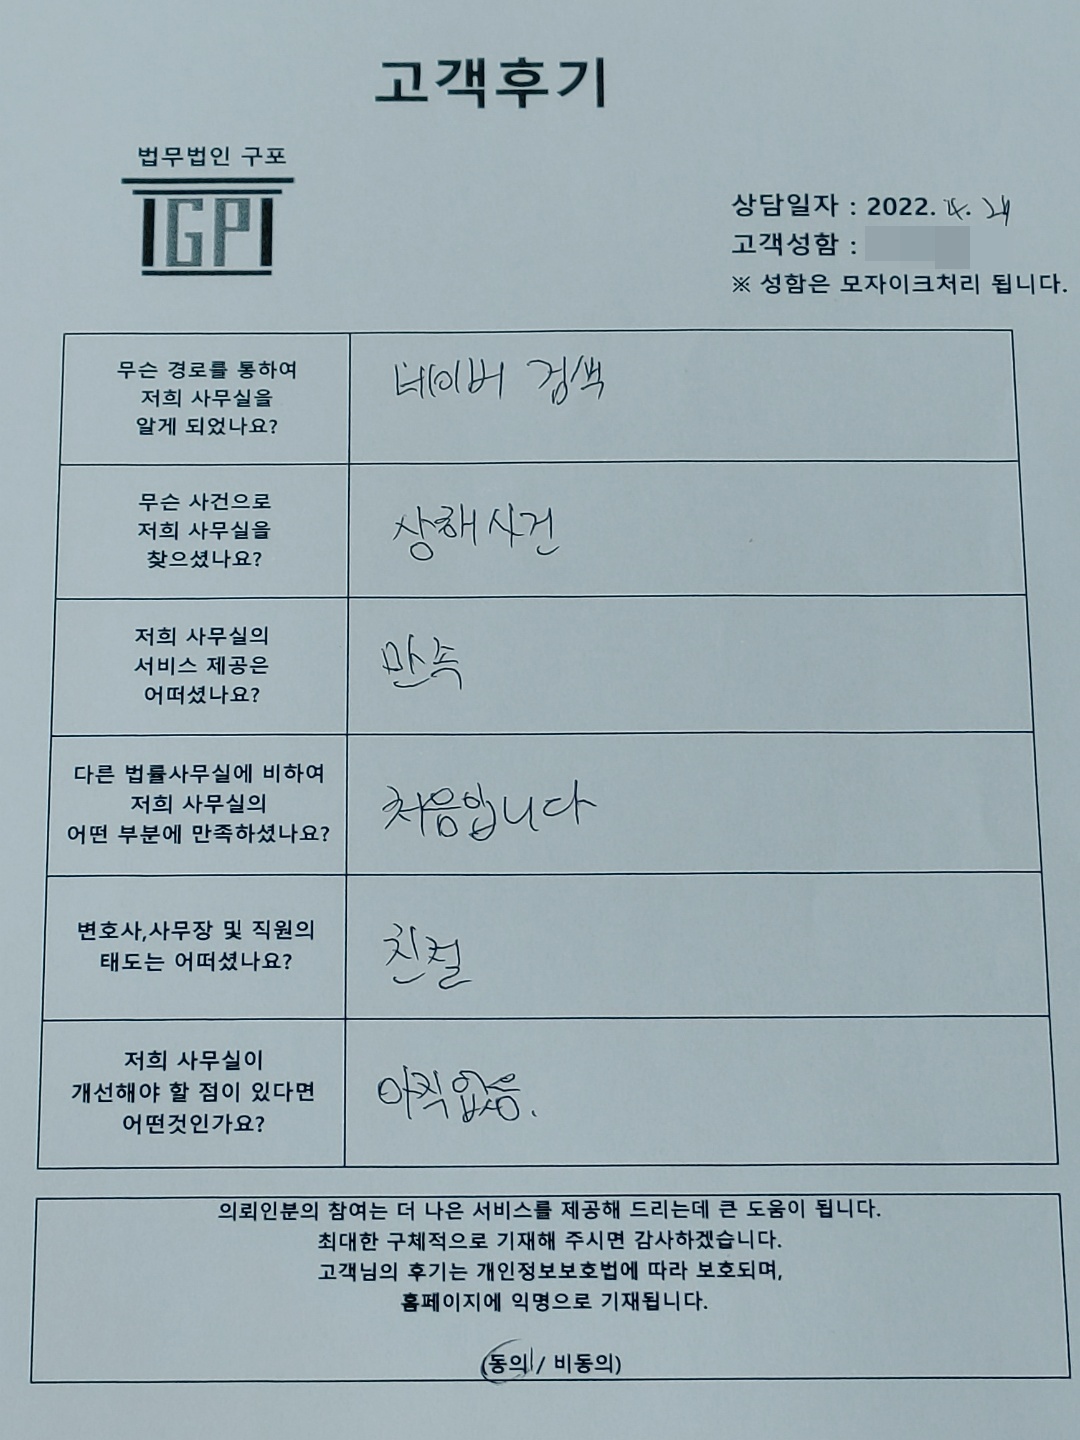 고객후기
법무법인 구포
IGPI
상담일자 : 2022. 4.
고객성함 :
※ 성함은 모자이크처리 됩니다.
무슨 경로를 통하여
저희 사무실을
알게 되었나요?
네이버 검색
무슨 사건으로
저희 사무실을
찾으셨나요?
상해사건
저희 사무실의
서비스 제공은
어떠셨나요?
만족
다른 법률사무실에 비하여
저희 사무실의
어떤 부분에 만족하셨나요?
처음입니다
변호사,사무장 및 직원의
태도는 어떠셨나요?
친절
저희 사무실이
개선해야 할 점이 있다면
어떤것인가요?
아직 없음.
의뢰인분의 참여는 더 나은 서비스를 제공해 드리는데 큰 도움이 됩니다.
최대한 구체적으로 기재해 주시면 감사하겠습니다.
고객님의 후기는 개인정보보호법에 따라 보호되며,
홈페이지에 익명으로 기재됩니다.
(동의 / 비동의)